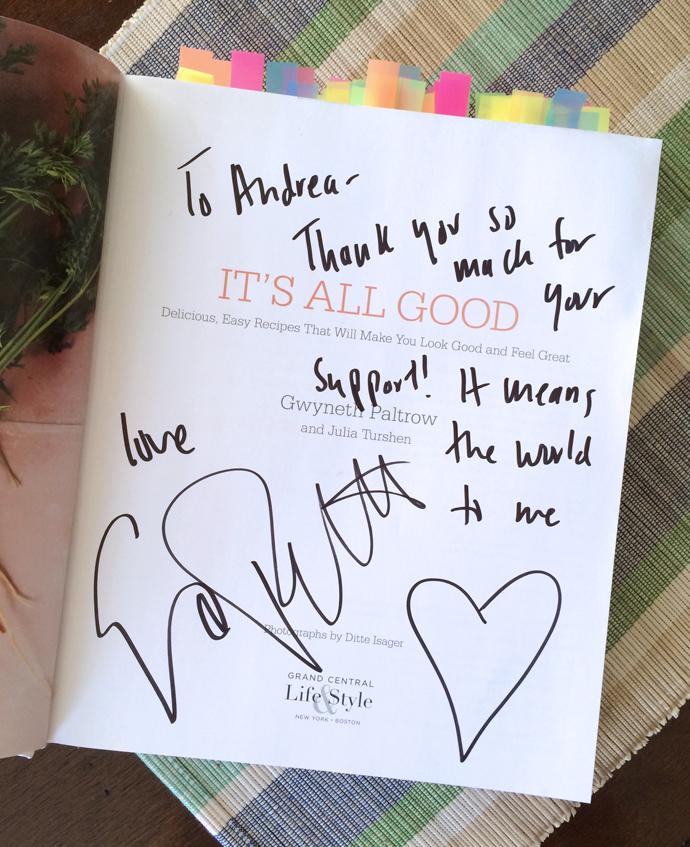 To Andrea-
Thank you so
much for
your
IT'S ALL GOOD
Delicious, Easy Recipes That Will Make You Look Good and Feel Great
Support! It means
Gwyneth Paltrow
and Julia Turshen
the world
to me
love
Photographs by Ditte Isager
GRAND CENTRAL
Life & Style
NEW YORK • BOSTON